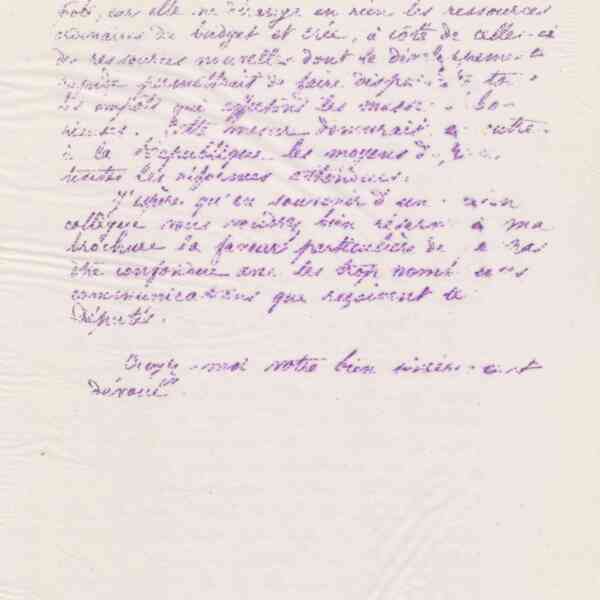 car elle ne dérange en rien les ressources
du budget et crée, à côté de celles-ci
des ressources nouvelles dont le développement
rapide permettrait de faire disparaître
les impôts que les masses
Cette donnerait en outre
à la République les moyens de
toutes les réformes attendues.
J'espère qu'en souvenir d'un ancien
collègue vous voudrez bien réserver à ma
brochure la faveur particulière de ne pas
être confondue avec les trop
communications que reçoivent les
Députés.
Croyez-moi votre bien sincèrement
dévoué